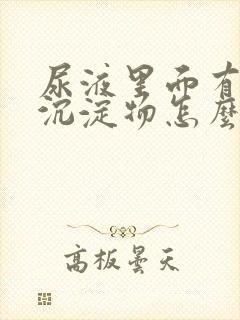 尿液里面有
沉淀物怎麽
高板昙天